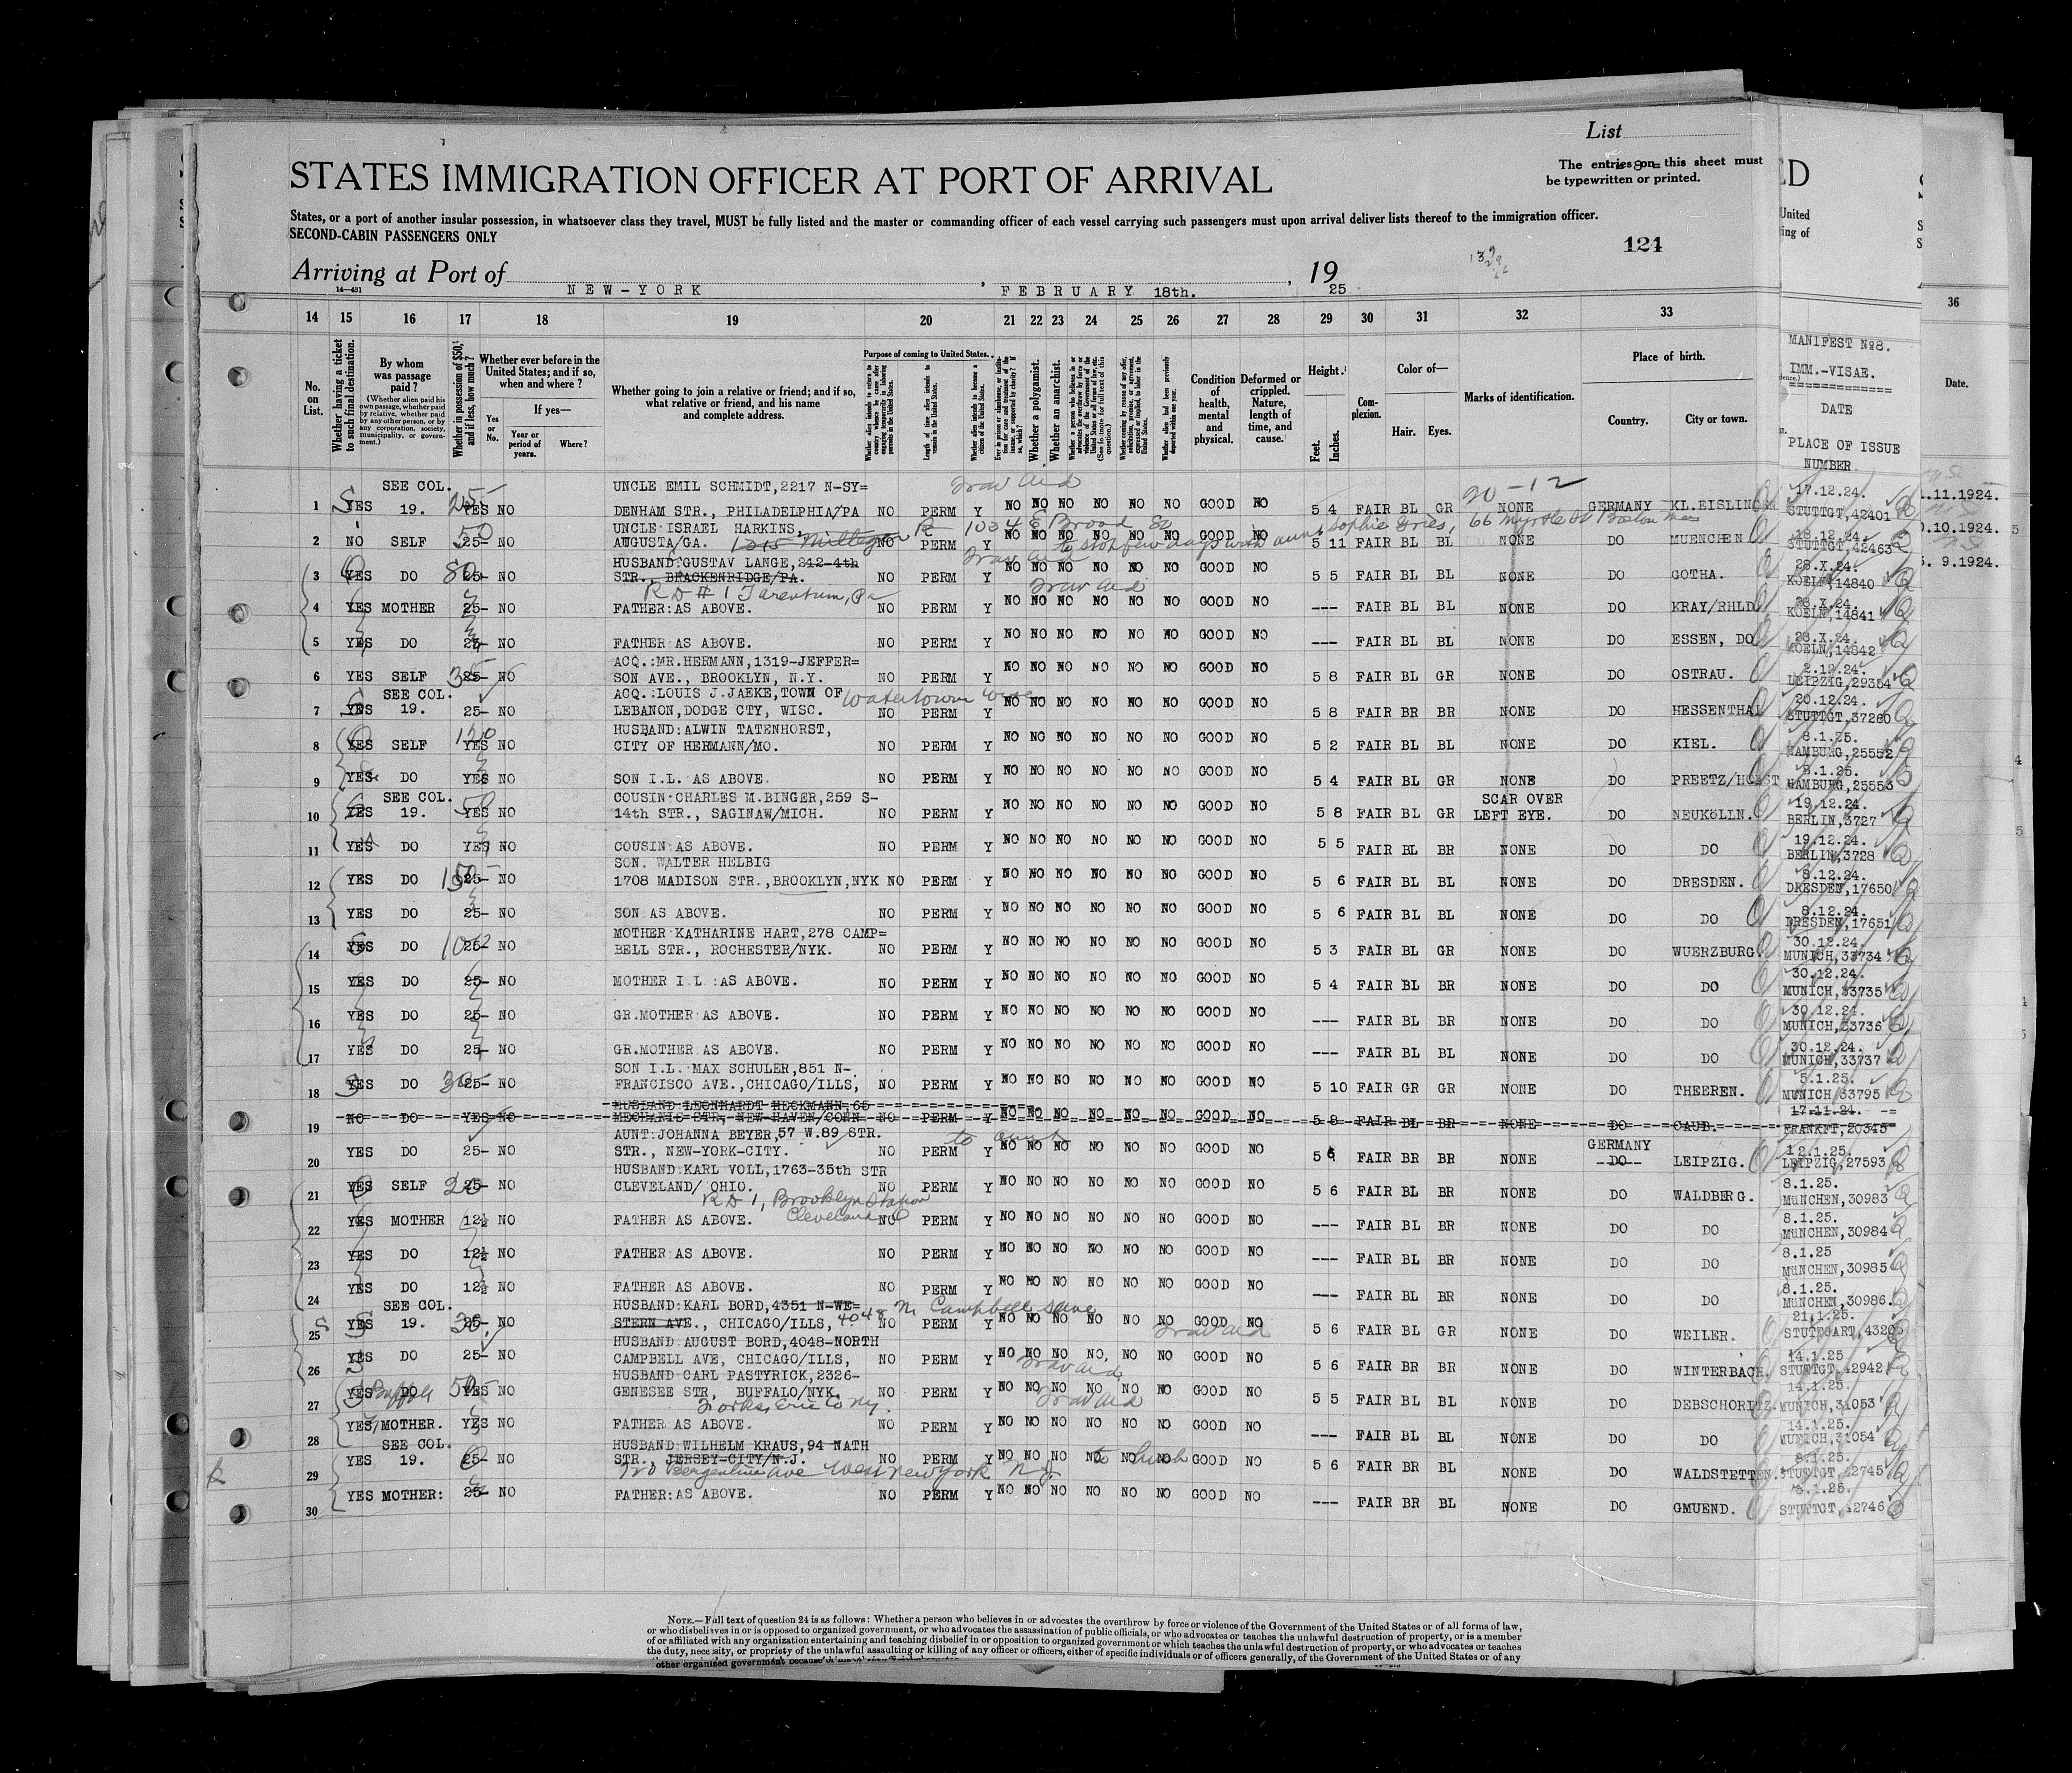 List
The entries on this sheet must
= 8 =
be typewritten or printed.
STATES IMMIGRATION OFFICER AT PORT OF ARRIVAL
States, or a port of another insular possession, in whatsoever class they travel, MUST be fully listed and the master or commanding officer of each vessel carrying such passengers must upon arrival deliver lists thereof to the immigration officer.
SECOND-CABIN PASSENGERS ONLY
121
Arriving at Port of NEW-YORK, FEBRUARY 18th., 1925
14—431
14 15 16 17 18 19 20 21 22 23 24 25 26 27 28 29 30 31 32 33 36
No. on List.
Whether having a ticket to such final destination.
By whom was passage paid?
(Whether alien paid his own passage, whether paid by relative, whether paid by any other person, or by any corporation, society, municipality, or government.)
Whether in possession of $50, and if less, how much?
Whether ever before in the United States; and if so, when and where?
Yes or No.
If yes—
Year or period of years.
Where?
Whether going to join a relative or friend; and if so, what relative or friend, and his name and complete address.
Purpose of coming to United States.
Length of time alien intends to remain in the United States.
Whether alien intends to become a citizen of the United States.
Whether a polygamist.
Whether an anarchist.
Condition of health, mental and physical.
Deformed or crippled. Nature, length of time, and cause.
Height.
Feet. Inches.
Complexion.
Color of—
Hair. Eyes.
Marks of identification.
Place of birth.
Country. City or town.
MANIFEST No8.
IMM.-VISAE.
DATE
PLACE OF ISSUE
NUMBER
Date.
SEE COL. UNCLE EMIL SCHMIDT,2217 N-SY= 17.12.24.
1 YES 19. YES NO DENHAM STR., PHILADELPHIA/PA NO PERM Y NO NO NO NO NO NO GOOD NO 5 4 FAIR BL GR NONE GERMANY KL.EISLINGEN STUTTGT,42401
UNCLE ISRAEL HARKINS, 1034 E Broad 18.12.24.
2 NO SELF 25- NO AUGUSTA/GA. NO PERM Y NO NO NO NO NO NO GOOD NO 5 11 FAIR BL BL NONE DO MUENCHEN STUTTGT,42463
to stop few days with aunt Sophie Gries, 66 Myrtle St Boston Mass
HUSBAND:GUSTAV LANGE,242-4th 28.X.24.
3 YES DO 25- NO STR., BRACKENRIDGE/PA. NO PERM Y NO NO NO NO NO NO GOOD NO 5 5 FAIR BL BL NONE DO GOTHA. KOELN,14840
R D # 1 Tarentum, Pa
4 YES MOTHER 25- NO FATHER:AS ABOVE. NO PERM Y NO NO NO NO NO NO GOOD NO --- FAIR BL BL NONE DO KRAY/RHLD 28.X.24. KOELN,14841
5 YES DO 25- NO FATHER AS ABOVE. NO PERM Y NO NO NO NO NO NO GOOD NO --- FAIR BL BL NONE DO ESSEN, DO 28.X.24. KOELN,14842
ACQ.:MR.HERMANN,1319-JEFFER= 2.12.24.
6 YES SELF 25- NO SON AVE., BROOKLYN, N.Y. NO PERM Y NO NO NO NO NO NO GOOD NO 5 8 FAIR BL GR NONE DO OSTRAU. LEIPZIG,29354
SEE COL. ACQ.:LOUIS J.JAEKE,TOWN OF Watertown Wisc 20.12.24.
7 YES 19. 25- NO LEBANON,DODGE CTY, WISC. NO PERM Y NO NO NO NO NO NO GOOD NO 5 8 FAIR BR BR NONE DO HESSENTHAL STUTTGT,37260
HUSBAND:ALWIN TATENHORST, 8.1.25.
8 YES SELF YES NO CITY OF HERMANN/MO. NO PERM Y NO NO NO NO NO NO GOOD NO 5 2 FAIR BL BL NONE DO KIEL. HAMBURG,25552
9 YES DO YES NO SON I.L. AS ABOVE. NO PERM Y NO NO NO NO NO NO GOOD NO 5 4 FAIR BL GR NONE DO PREETZ/HOLST 8.1.25. HAMBURG,25553
SEE COL. COUSIN CHARLES M.BINGER,259 S- SCAR OVER 19.12.24.
10 YES 19. YES NO 14th STR., SAGINAW/MICH. NO PERM Y NO NO NO NO NO NO GOOD NO 5 8 FAIR BL GR LEFT EYE. DO NEUKöLLN. BERLIN,3727
11 YES DO YES NO COUSIN AS ABOVE. NO PERM Y NO NO NO NO NO NO GOOD NO 5 5 FAIR BL BR NONE DO DO 19.12.24. BERLIN,3728
SON. WALTER HELBIG 8.12.24.
12 YES DO 25- NO 1708 MADISON STR.,BROOKLYN,NYK NO PERM Y NO NO NO NO NO NO GOOD NO 5 6 FAIR BL BL NONE DO DRESDEN. DRESDEN,17650
13 YES DO 25- NO SON AS ABOVE. NO PERM Y NO NO NO NO NO NO GOOD NO 5 6 FAIR BL BL NONE DO DO 8.12.24. DRESDEN,17651
MOTHER KATHARINE HART,278 CAMP= 30.12.24.
14 YES DO 25- NO BELL STR., ROCHESTER/NYK. NO PERM Y NO NO NO NO NO NO GOOD NO 5 3 FAIR BL GR NONE DO WUERZBURG MUNICH,33734
15 YES DO 25- NO MOTHER I.L.:AS ABOVE. NO PERM Y NO NO NO NO NO NO GOOD NO 5 4 FAIR BL BR NONE DO DO 30.12.24. MUNICH,33735
16 YES DO 25- NO GR.MOTHER AS ABOVE. NO PERM Y NO NO NO NO NO NO GOOD NO --- FAIR BL BR NONE DO DO 30.12.24. MUNICH,33736
17 YES DO 25- NO GR.MOTHER AS ABOVE. NO PERM Y NO NO NO NO NO NO GOOD NO --- FAIR BL BL NONE DO DO 30.12.24. MUNICH,33737
SON I.L. MAX SCHULER,851 N- 5.1.25.
18 YES DO 25- NO FRANCISCO AVE.,CHICAGO/ILLS, NO PERM Y NO NO NO NO NO NO GOOD NO 5 10 FAIR GR GR NONE DO THEEREN. MUNICH,33795
HUSBAND LEONHARDT HECKMANN,65 17.11.24.
19 NO DO YES NO MECHANIS STR, NEW HAVEN/CONN NO PERM Y NO NO NO NO NO NO GOOD NO 5 8 FAIR BL BR NONE DO CAUB. FRANKFT,20345
AUNT:JOHANNA BEYER,57 W.89 STR. to aunt GERMANY 12.1.25.
20 YES DO 25- NO STR., NEW-YORK-CITY. NO PERM Y NO NO NO NO NO NO GOOD NO 5 6 FAIR BR BR NONE DO LEIPZIG. LEIPZIG,27593
HUSBAND KARL VOLL,1763-35th STR 8.1.25.
21 YES SELF 25- NO CLEVELAND/ OHIO. NO PERM Y NO NO NO NO NO NO GOOD NO 5 6 FAIR BL BR NONE DO WALDBERG. MüNCHEN,30983
R D 1, Brooklyn Station
Cleveland O
22 YES MOTHER 12½ NO FATHER AS ABOVE. NO PERM Y NO NO NO NO NO NO GOOD NO --- FAIR BL BR NONE DO DO 8.1.25. MüNCHEN,30984
23 YES DO 12½ NO FATHER AS ABOVE. NO PERM Y NO NO NO NO NO NO GOOD NO --- FAIR BL BR NONE DO DO 8.1.25 MüNCHEN,30985
24 YES DO 12½ NO FATHER AS ABOVE. NO PERM Y NO NO NO NO NO NO GOOD NO --- FAIR BL BR NONE DO DO 8.1.25. MüNCHEN,30986.
SEE COL. HUSBAND:KARL BORD,4351 N-WE= 4048 N. Campbell ave 21.1.25.
25 YES 19. 25- NO STERN AVE., CHICAGO/ILLS, NO PERM Y NO NO NO NO NO NO GOOD NO 5 6 FAIR BL GR NONE DO WEILER. STUTTGART,4320
HUSBAND AUGUST BORD,4048-NORTH 14.1.25
26 YES DO 25- NO CAMPBELL AVE, CHICAGO/ILLS, NO PERM Y NO NO NO NO NO NO GOOD NO 5 6 FAIR BR BR NONE DO WINTERBACH. STUTTGT,42942
HUSBAND CARL PASTYRICK,2326- 14.1.25.
27 YES DO YES NO GENESEE STR, BUFFALO/NYK. NO PERM Y NO NO NO NO NO NO GOOD NO 5 5 FAIR BL BL NONE DO DEBSCHORITZ. MUNICH,31053
Forks, Erie Co Ny.
28 YES MOTHER. YES NO FATHER AS ABOVE. NO PERM Y NO NO NO NO NO NO GOOD NO --- FAIR BL BL NONE DO DO 14.1.25. MUNICH,31054
SEE COL. HUSBAND WILHELM KRAUS,94 NATH 8.1.25.
29 YES 19. 25- NO STR., JERSEY-CITY/N.J. NO PERM Y NO NO NO NO NO NO GOOD NO 5 6 FAIR BR BL NONE DO WALDSTETTEN. STUTTGT,42745
720 Bergenline ave West New York N.J.
30 YES MOTHER: 25- NO FATHER:AS ABOVE. NO PERM Y NO NO NO NO NO NO GOOD NO --- FAIR BR BL NONE DO GMUEND. 8.1.25. STUTTGT,42746
.11.1924.
.10.1924.
. 9.1924.
NOTE.—Full text of question 24 is as follows: Whether a person who believes in or advocates the overthrow by force or violence of the Government of the United States or of all forms of law,
or who disbelieves in or is opposed to organized government, or who advocates the assassination of public officials, or who advocates or teaches the unlawful destruction of property, or is a member
of or affiliated with any organization entertaining and teaching disbelief in or opposition to organized government or which teaches the unlawful destruction of property, or who advocates or teaches
the duty, necessity, or propriety of the unlawful assaulting or killing of any officer or officers, either of specific individuals or of officers generally, of the Government of the United States or of any
other organized government because